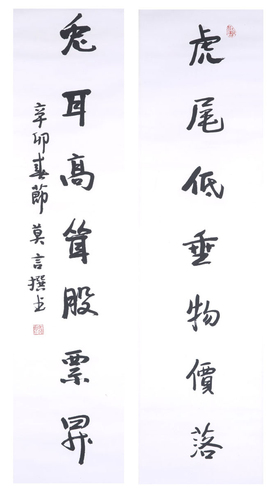 虎尾低垂物價落
兔耳高聳股票昇
辛卯春節 莫言撰书